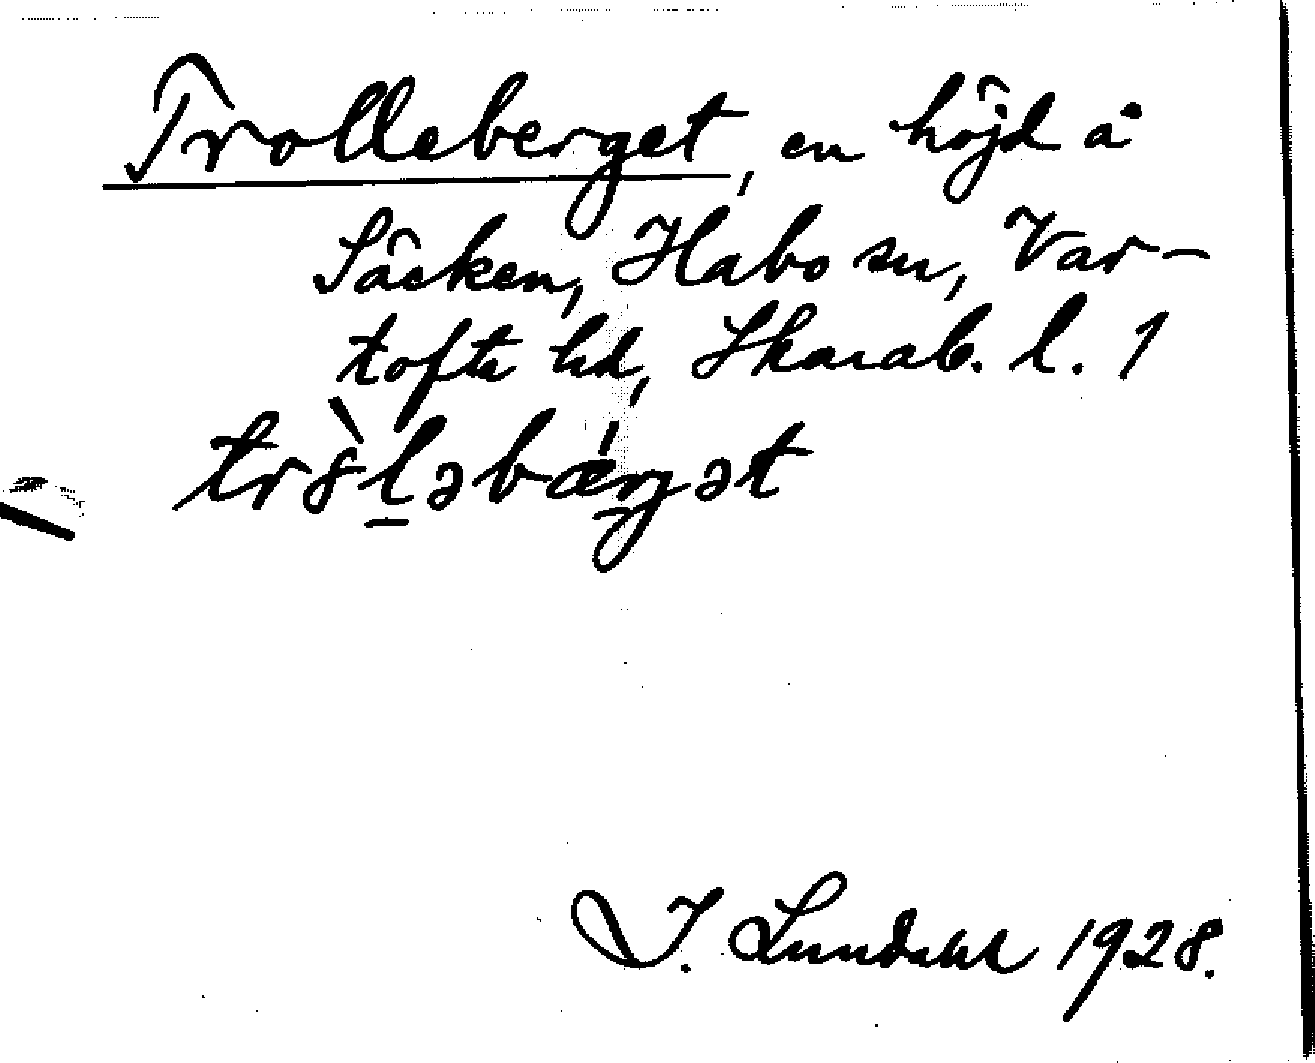 Trolleberget, en höjd å
Säcken, Habo sn, Var-
tofta hd, Skarab. l. 1
tr8̀l̠əbǽrgət
I. Lundahl 1928.